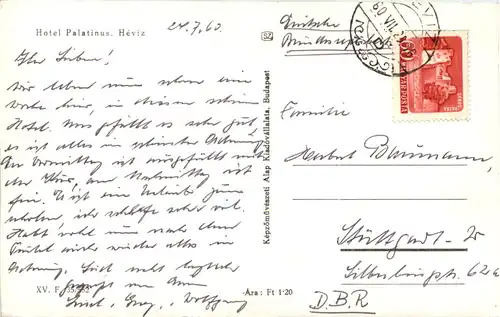 Hotel Palatinus. Héviz
24.7.60
Ihr Lieben!
Wir leben nun schon eine
Woche hier, in diesem schönen
Hotel. Uns gefällt es sehr gut,
es ist alles in schönster Ordnung.
Der Vormittag ist ausgefüllt mit
der Kur, am Nachmittag ist
frei. Es ist ein Urlaub zum
erholen, ich schlafe sehr viel.
wieder alles in
Ordnung. Seid recht herzlich
gegrüßt von
Wolfgang
XV. F.
Ára: Ft 1·20
Képzőművészeti Alap Kiadóvállalata, Budapest
Deutsche
Bundesrep.
HÉVIZ
60 VII.
MAGYAR POSTA
Familie
Herbert Baumann,
Stuttgart-W
Silberburgstr. 62a
D.B.R